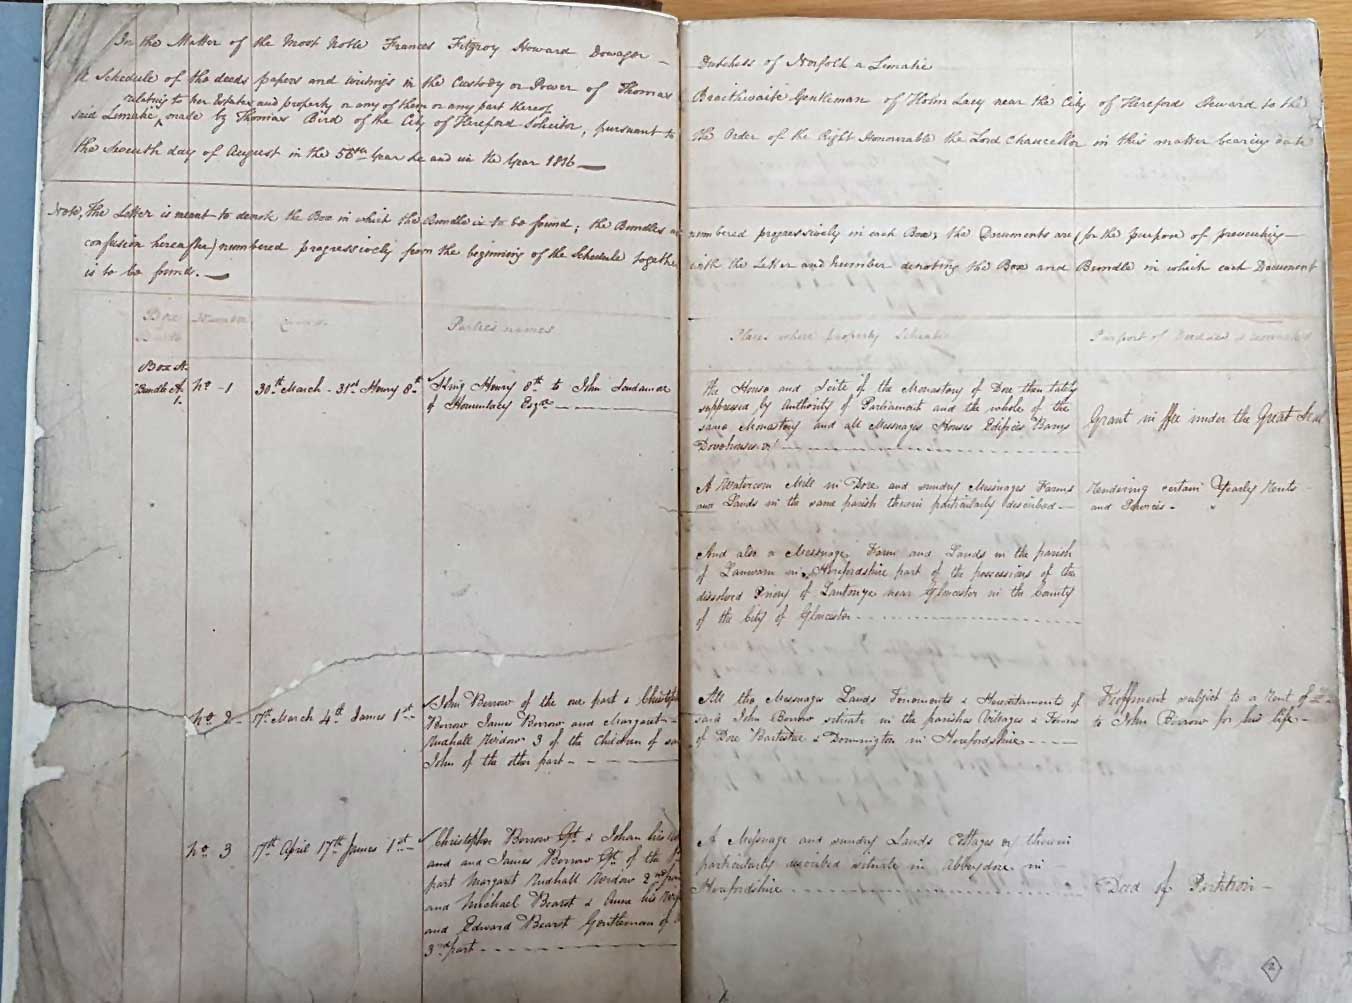 In the Matter of the Most Noble Frances Fitzroy Howard Dowager – Dutchess of Norfolk a Lunatic
A Schedule of the deeds papers and writings in the Custody or Power of Thomas Braithwaite Gentleman of Holm Lacy near the City of Hereford Steward to the
relating to her Estates and property or any of them or any part thereof
said Lunatic ^ made by Thomas Bird of the City of Hereford Solicitor, pursuant to the Order of the Right Honourable the Lord Chancellor in this matter bearing date
the Seventh day of August in the 56th Year and in the Year 1816 —
Note, The Letter is meant to denote the Box in which the Bundle is to be found; the Bundles are numbered progressively in each Box; the Documents are (for the purpose of preventing –
confusion hereafter) numbered progressively from the beginning of the Schedule together with the Letter and number denoting the Box and Bundle in which each Document
is to be found. —
Box Number Parties names Place where property Situate Purport of
Bundle
Box A.
Bundle A. No. 1 30th March – 31st Henry 8th King Henry 8th to John Scudamore
1.
of Hommlacy Esqre
The House and Scite of the Monastery of Dore then lately
suppressed by Authority of Parliament and the whole of the
same Monastery and all Messuages Houses Edifices Barns
Dovehouses &c
Grant in ffee under the Great Seal
A Watercorn Mill in Dore and sundry Messuages Farms
and Lands in the same parish therein particularly described –
Rendering certain Yearly Rents
and Services –
And also a Messuage Farm and Lands in the parish
of Lanwarn in Herefordshire part of the possessions of the
dissolved Priory of Lantonye near Gloucester in the County
of the City of Gloucester
No. 2 – 17th March 4th James 1st – John Berrow of the one part & Christopher
Berrow James Berrow and Margaret –
Nudhall Widow 3 of the Children of said
John of the other part –
All the Messuages Lands Tenements & Hereditaments of
said John Berrow situate in the parishes Villages & Towns
of Dore & Donnington in Herefordshire
Feoffment subject to a Rent of
to John Berrow for his life –
No. 3 17th April 17th James 1st – Christopher Berrow Gt. & Johan his
and and James Berrow Gt. of the
part Margaret Nudhall Widow 2nd part
and Michael Bearst & Anne his
and Edward Bearst Gentleman of
3rd part –
A Messuage and sundry Lands Cottages &c therein
particularly described situate in Abbeydore in –
Herefordshire
Deed of Partition –
2